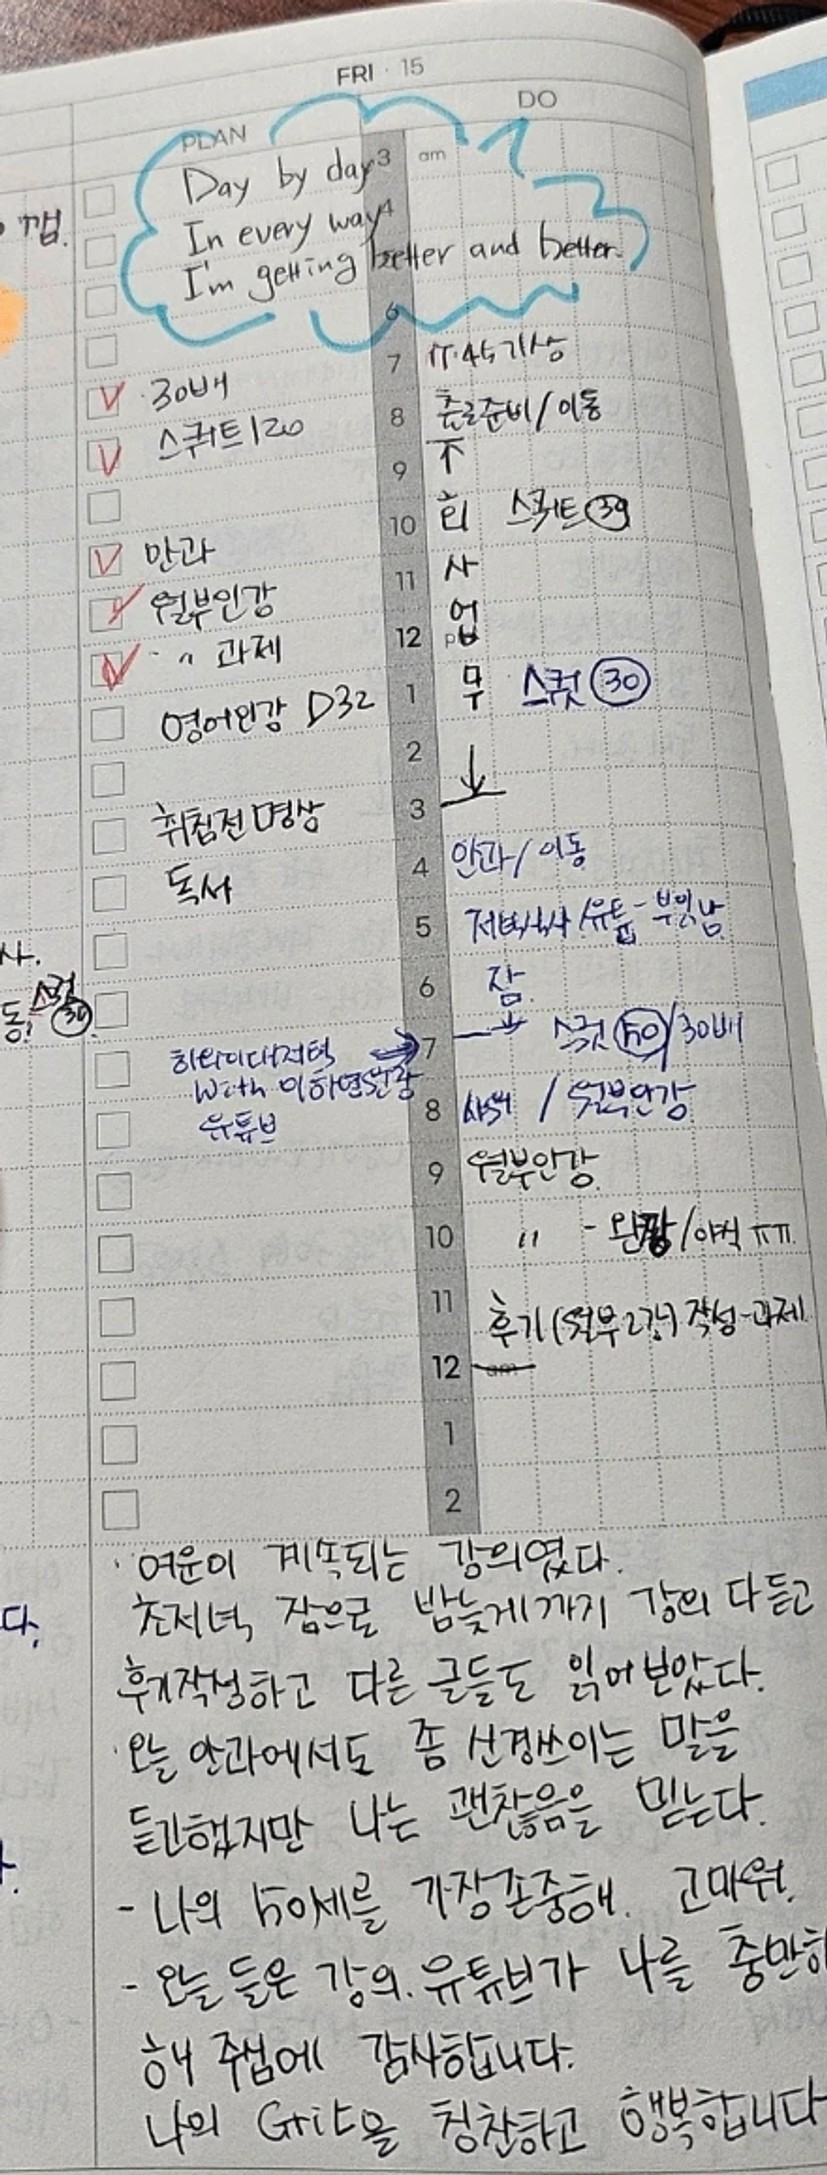 FRI · 15
PLAN
DO
Day by day
In every way
I'm getting better and better.
깹.
3 am
4
6
7 5:45 기상
30배
8 출근준비 / 이동
스쿼트 120
9 ↑
10 회 스쿼트 39
만과
11 사
월부인강
12 업
〃 과제
1 무 스쿼 30
영어인강 D32
2 ↓
3
취침전 명상
4 안과 / 이동
독서
5 저녁식사 / 유튭 - 부읽남
사.
6 잠
스쿼
동! 30
7 스쿼 50 / 30배
하와이대저택
with 이하영원장
유튜브
8 샤워 / 월부인강
9 월부인강
10 〃 - 완강 / 야식 ㅠㅠ
11 후기 (월부 2강) 작성 - 과제
12 am
1
2
· 여운이 계속되는 강의였다.
초저녁 잠으로 밤늦게까지 강의 다 듣고
다.
후기작성하고 다른 글들도 읽어보았다.
· 오늘 안과에서도 좀 신경쓰이는 말을
듣긴했지만 나는 괜찮음을 믿는다.
- 나의 50세를 가장 존중해. 고마워.
- 오늘 들은 강의. 유튜브가 나를 충만하
해 주심에 감사합니다.
나의 Grit을 칭찬하고 행복합니다